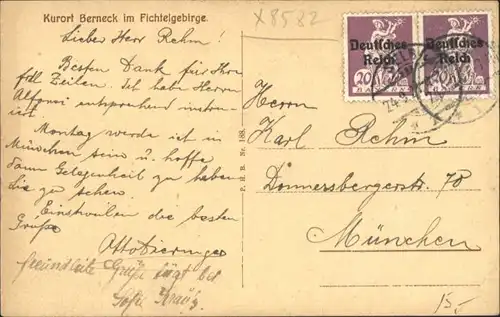 Kurort Berneck im Fichtelgebirge.
X 8582
Lieber Herr Rehm!
Besten Dank für Ihre
frdl Zeilen. Ich habe Herrn
entsprechend instru-
iert.
Montag werde ist in
München sein u. hoffe
dann Gelegenheit zu haben
Sie zu sehen.
Einstweilen die besten
Grüße
Otto
freundliche Grüße fügt bei
Sofie
P. R. B. Nr. 188.
Deutsches Reich
20
Deutsches Reich
20
Herrn
Karl Rehm
Donnersbergerstr. 78
München
15,-